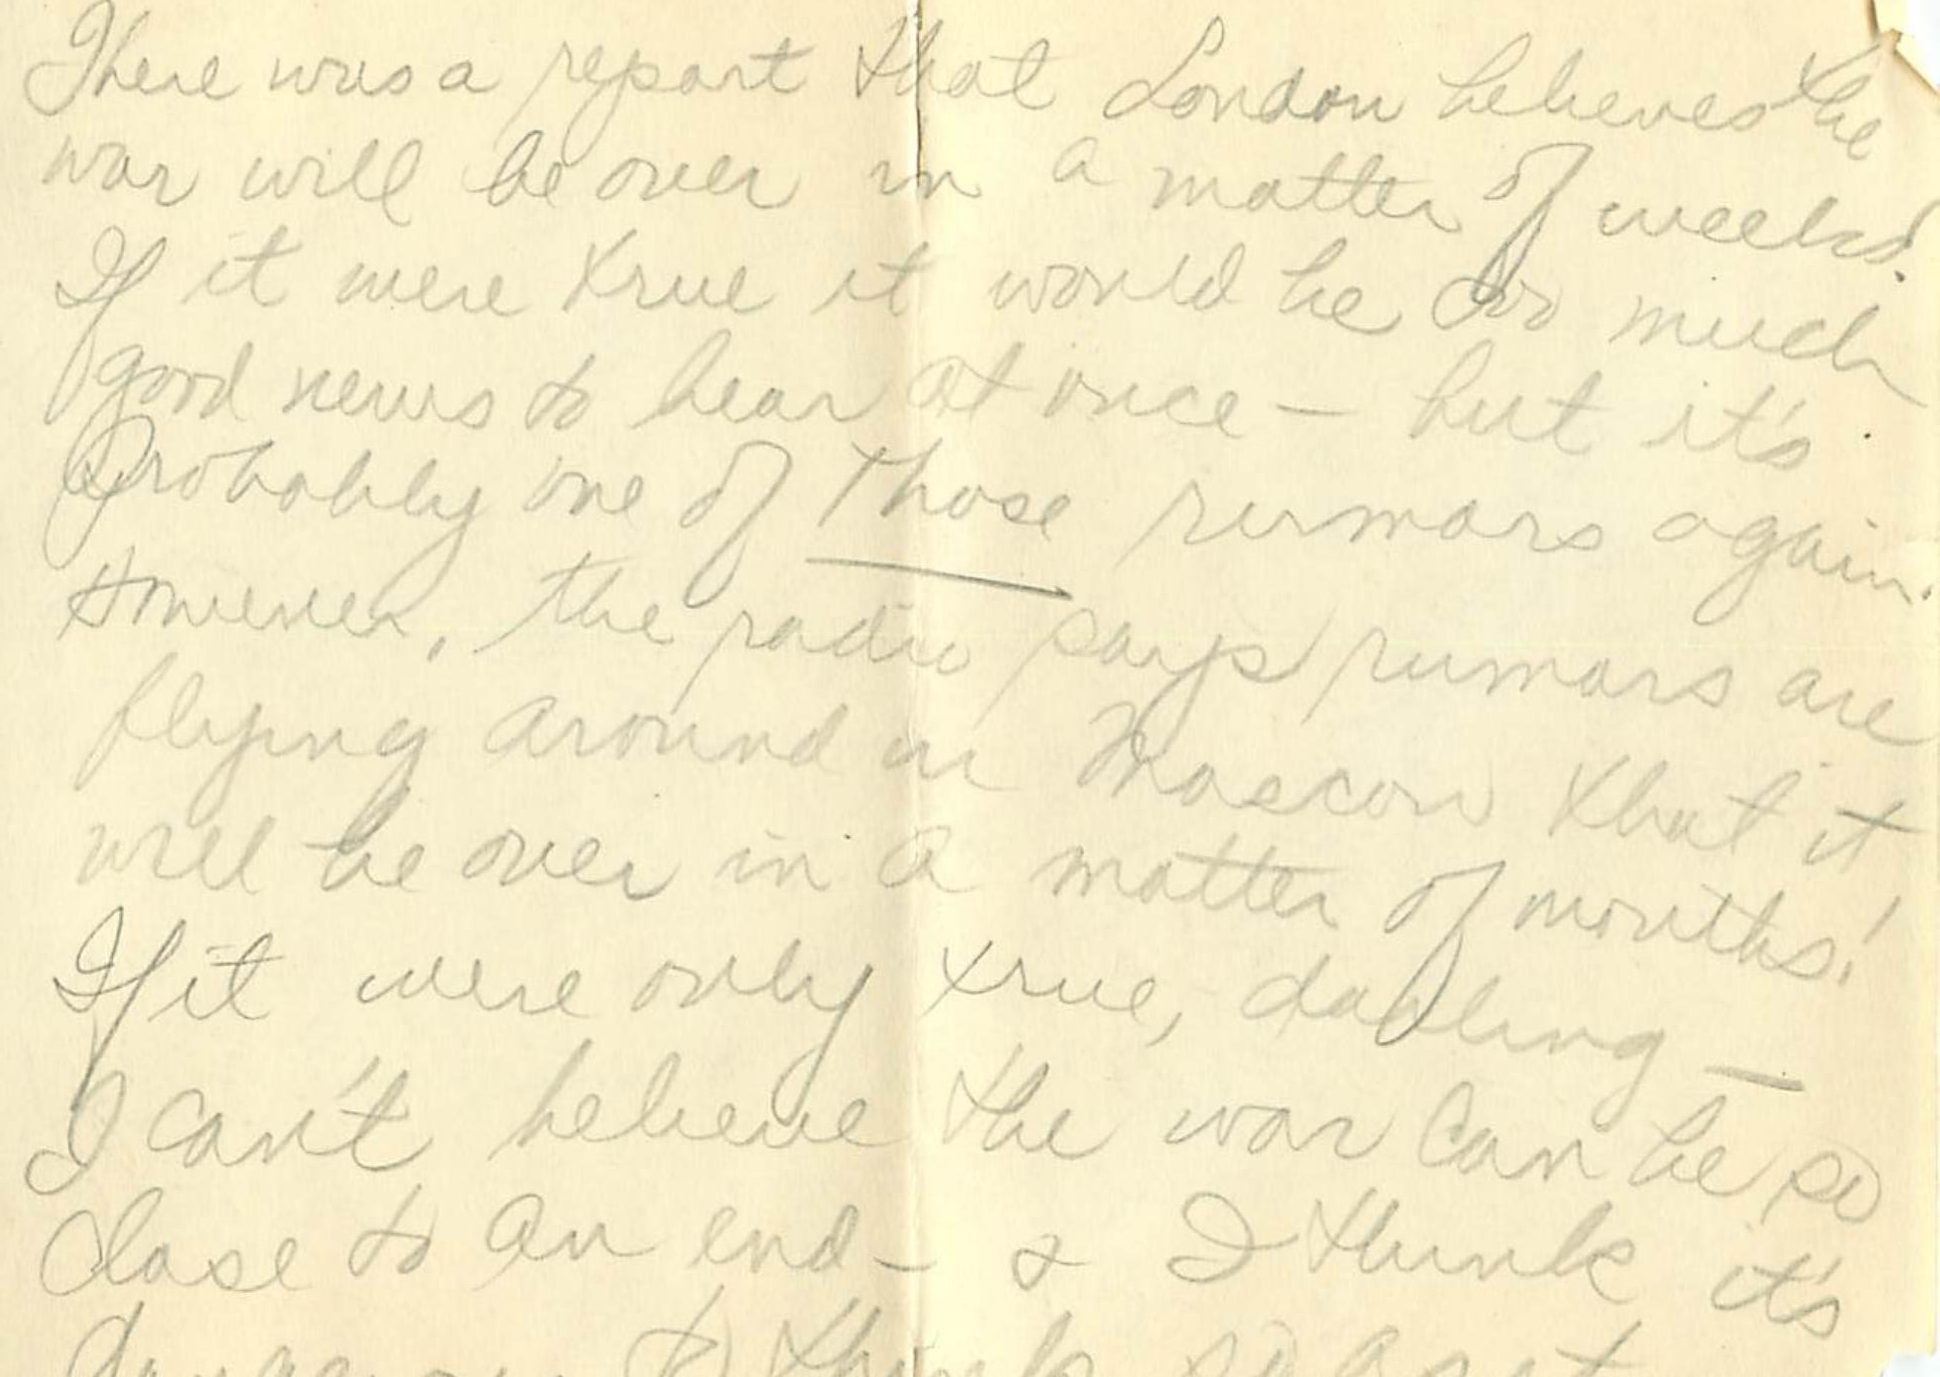 There was a report that London believes the
war will be over in a matter of weeks!
If it were true it would be too much
good news to hear at once — but it's
Probably one of those rumors again.
However, the radio says rumors are
flying around in Moscow that it
will be over in a matter of months!
If it were only true, darling —
I can't believe the war can be so
close to an end — & I think it's
to think so but